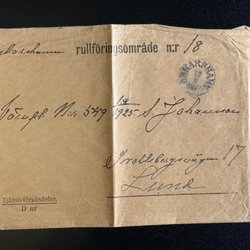 rullföringsområde n:r 18
OSKARSHAMN
Nr 549 1925 S. Johansson
Trollebergsvägen 17
Lund
Tjänsteförsändelse.
D nr